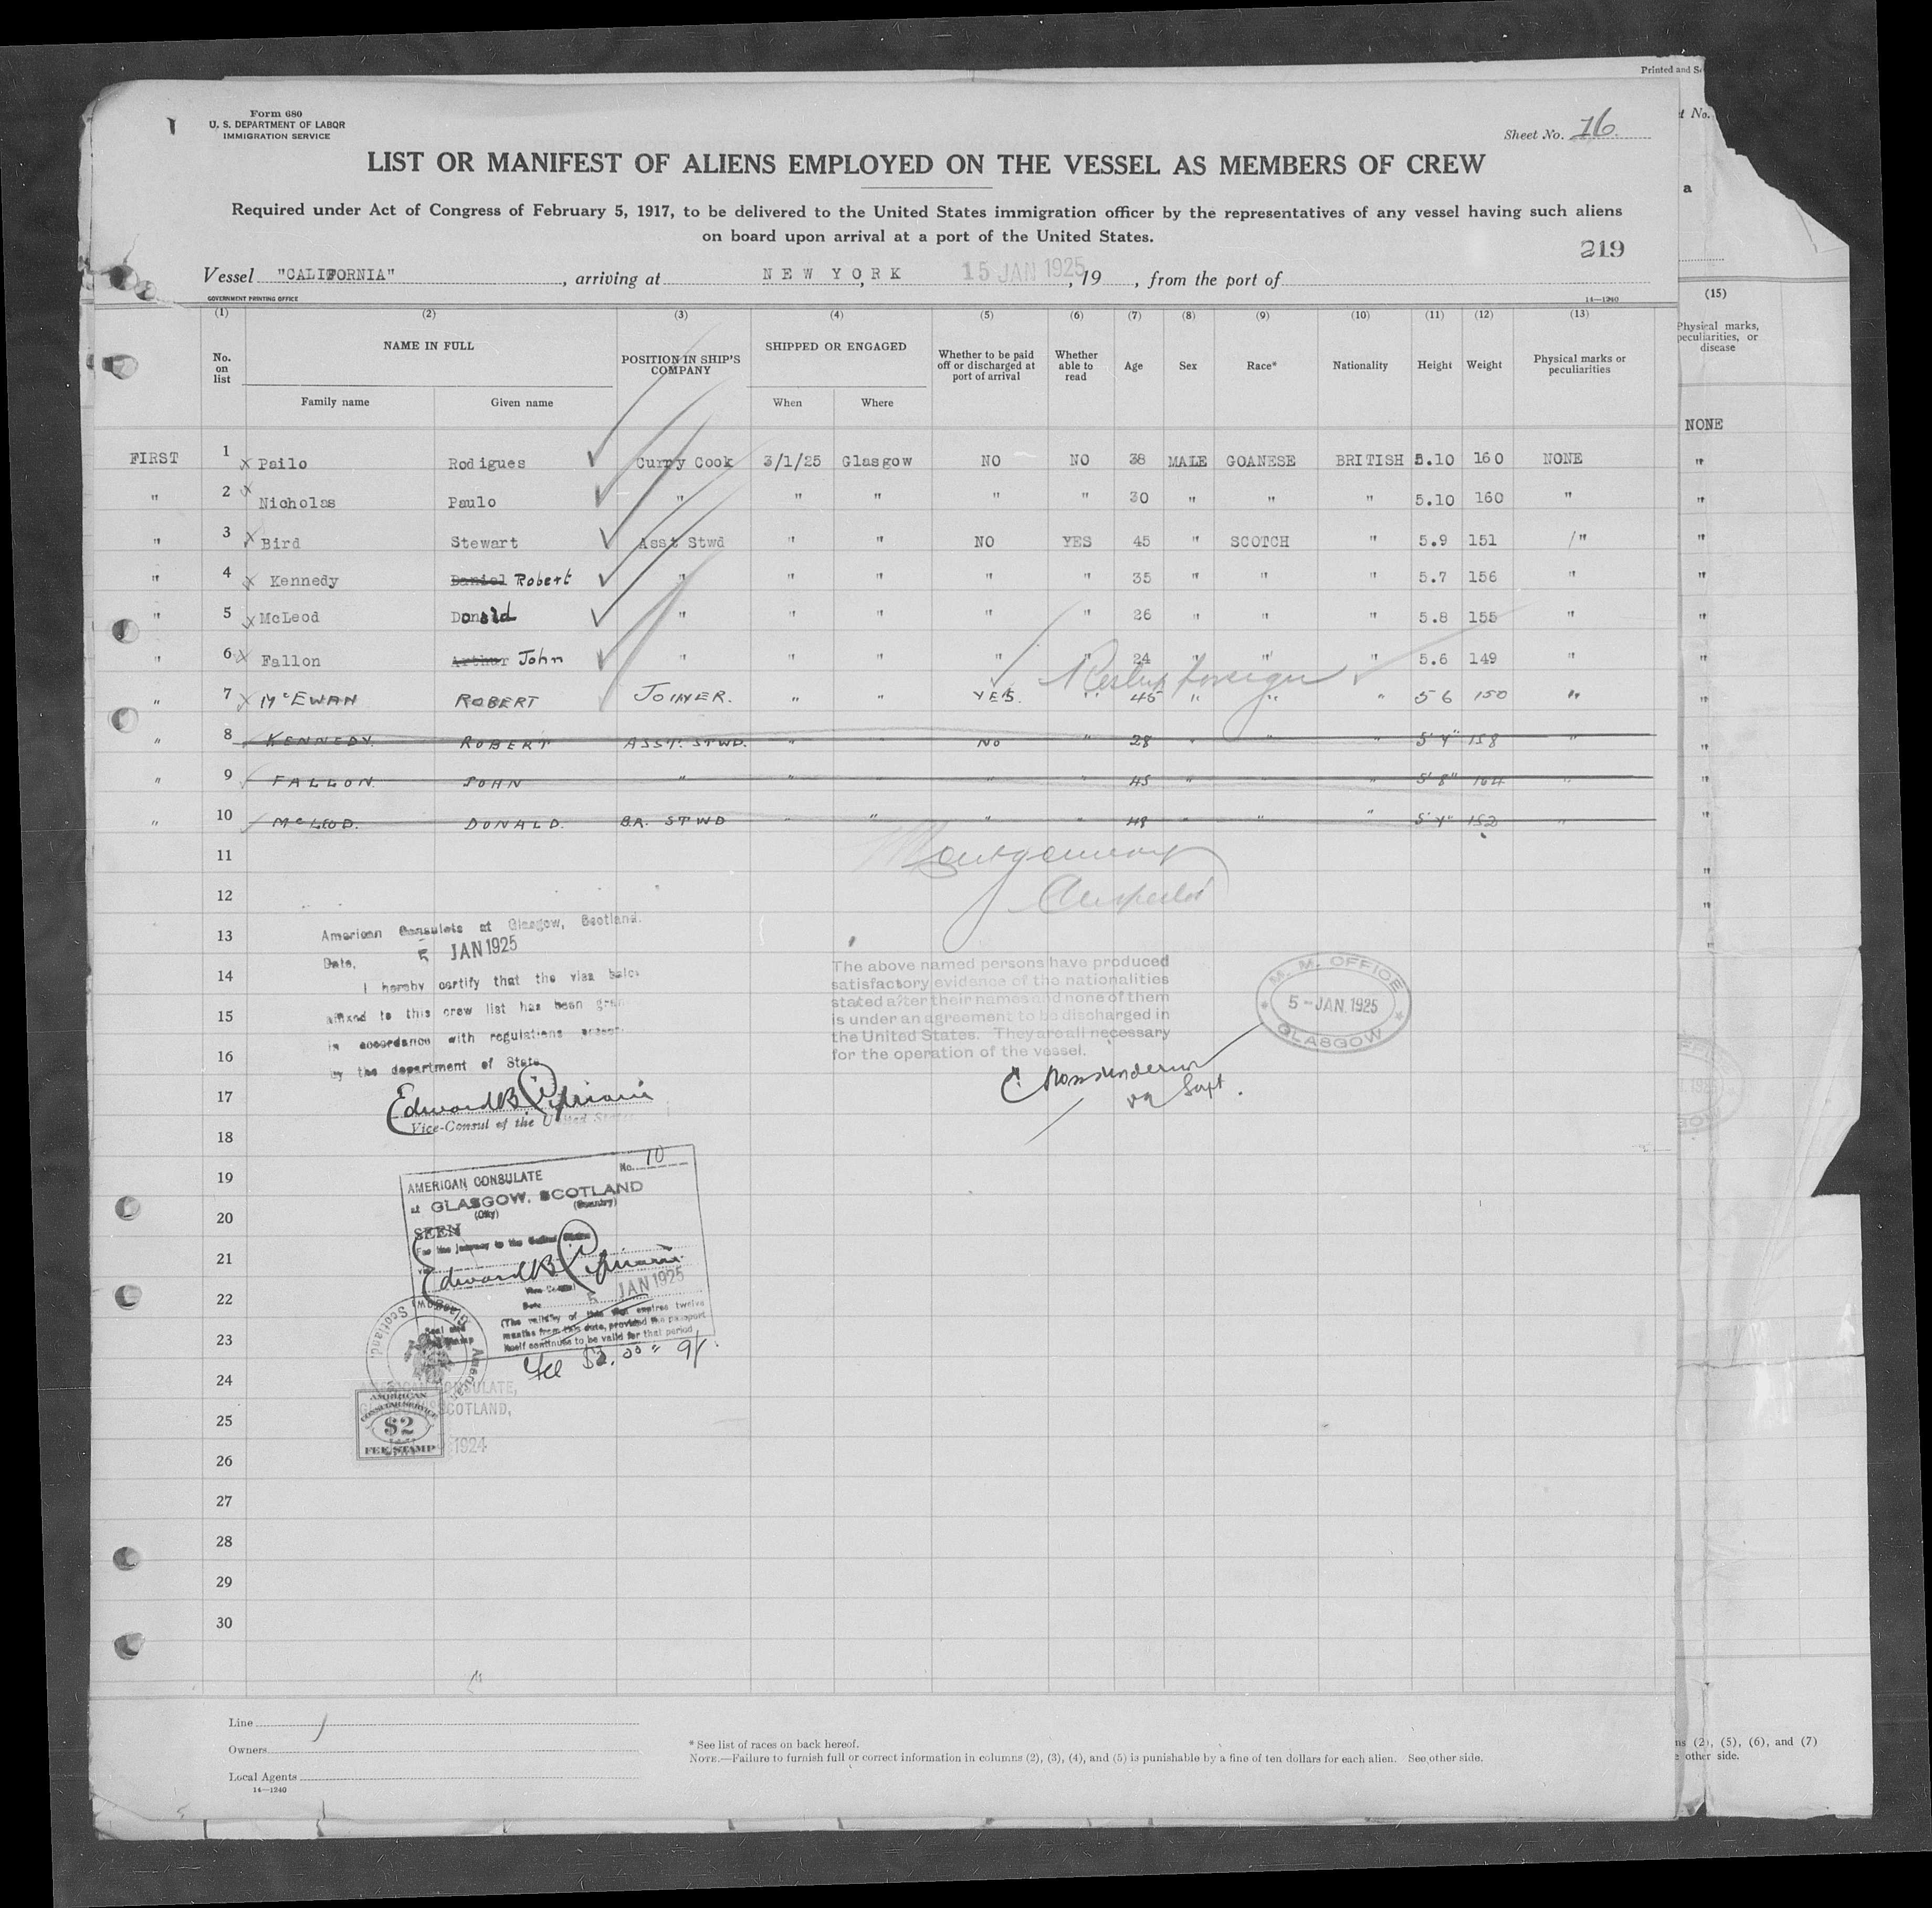 Printed and S
Form 680
U. S. DEPARTMENT OF LABOR
IMMIGRATION SERVICE
Sheet No. 16
t No.
LIST OR MANIFEST OF ALIENS EMPLOYED ON THE VESSEL AS MEMBERS OF CREW
a
Required under Act of Congress of February 5, 1917, to be delivered to the United States immigration officer by the representatives of any vessel having such aliens
on board upon arrival at a port of the United States.
219
Vessel "CALIFORNIA", arriving at NEW YORK, 15 JAN 1925, 19 , from the port of
GOVERNMENT PRINTING OFFICE
14—1240
(1) (2) (3) (4) (5) (6) (7) (8) (9) (10) (11) (12) (13) (15)
No. on list NAME IN FULL POSITION IN SHIP'S COMPANY SHIPPED OR ENGAGED Whether to be paid off or discharged at port of arrival Whether able to read Age Sex Race* Nationality Height Weight Physical marks or peculiarities Physical marks, peculiarities, or disease
Family name Given name When Where
NONE
FIRST 1 x Pailo Rodigues Curry Cook 3/1/25 Glasgow NO NO 38 MALE GOANESE BRITISH 5.10 160 NONE "
" 2 x Nicholas Paulo " " " " " 30 " " " 5.10 160 " "
" 3 x Bird Stewart Asst Stwd " " NO YES 45 " SCOTCH " 5.9 151 " "
" 4 x Kennedy Daniel Robert " " " " " 35 " " " 5.7 156 " "
" 5 x McLeod Donald " " " " " 26 " " " 5.8 155 " "
" 6 x Fallon Arthur John " " " " " 24 " " " 5.6 149 " "
" 7 x McEWAN ROBERT JOINER. " " YES. " 45 " " " 5 6 150 " "
" 8 KENNEDY. ROBERT ASST. STWD. " " NO " 28 " " " 5' 4" 158 " "
" 9 FALLON. JOHN " " " " 45 " " 5' 8" 164 " "
" 10 McLEOD. DONALD. B.R. STWD " " " " 48 " " " 5' 4" 152 " "
11
12
13
14
15
16
17
18
19
20
21
22
23
24
25
26
27
28
29
30
Montgomery
American Consulate at Glasgow, Scotland.
Date, 5 JAN 1925
I hereby certify that the visa
affixed to this crew list has been
in accordance with regulations
by the department of State
Edward B. Cipriani
Vice-Consul of the United States
The above named persons have produced
satisfactory evidence of the nationalities
stated after their names and none of them
is under an agreement to be discharged in
the United States. They are all necessary
for the operation of the vessel.
Supt.
M. M. OFFICE
5-JAN.1925
GLASGOW
No. 10
AMERICAN CONSULATE
at GLASGOW, SCOTLAND
(City) (Country)
SEEN
For the journey to the United States
Edward B. Cipriani
Vice Consul
Date 5 JAN 1925
(The validity of this visa expires twelve
months from this date, provided the passport
itself continues to be valid for that period
Fee $2.00 = 9/.
Glasgow, Scotland. American
Seal and Stamp
CONSULATE,
SCOTLAND,
1924
AMERICAN
CONSULAR SERVICE
$2
FEE STAMP
Line
Owners
Local Agents
14—1240
* See list of races on back hereof.
NOTE.—Failure to furnish full or correct information in columns (2), (3), (4), and (5) is punishable by a fine of ten dollars for each alien. See other side.
ns (2), (5), (6), and (7)
other side.